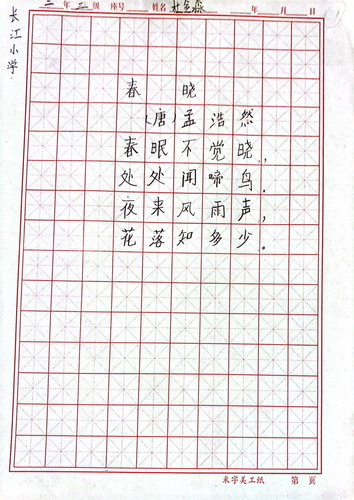 长江小学
二年二级 座号 姓名 年 月 日
春 晓
(唐)孟浩然
春眠不觉晓,
处处闻啼鸟.
夜来风雨声,
花落知多少.
米字美工纸 第 页